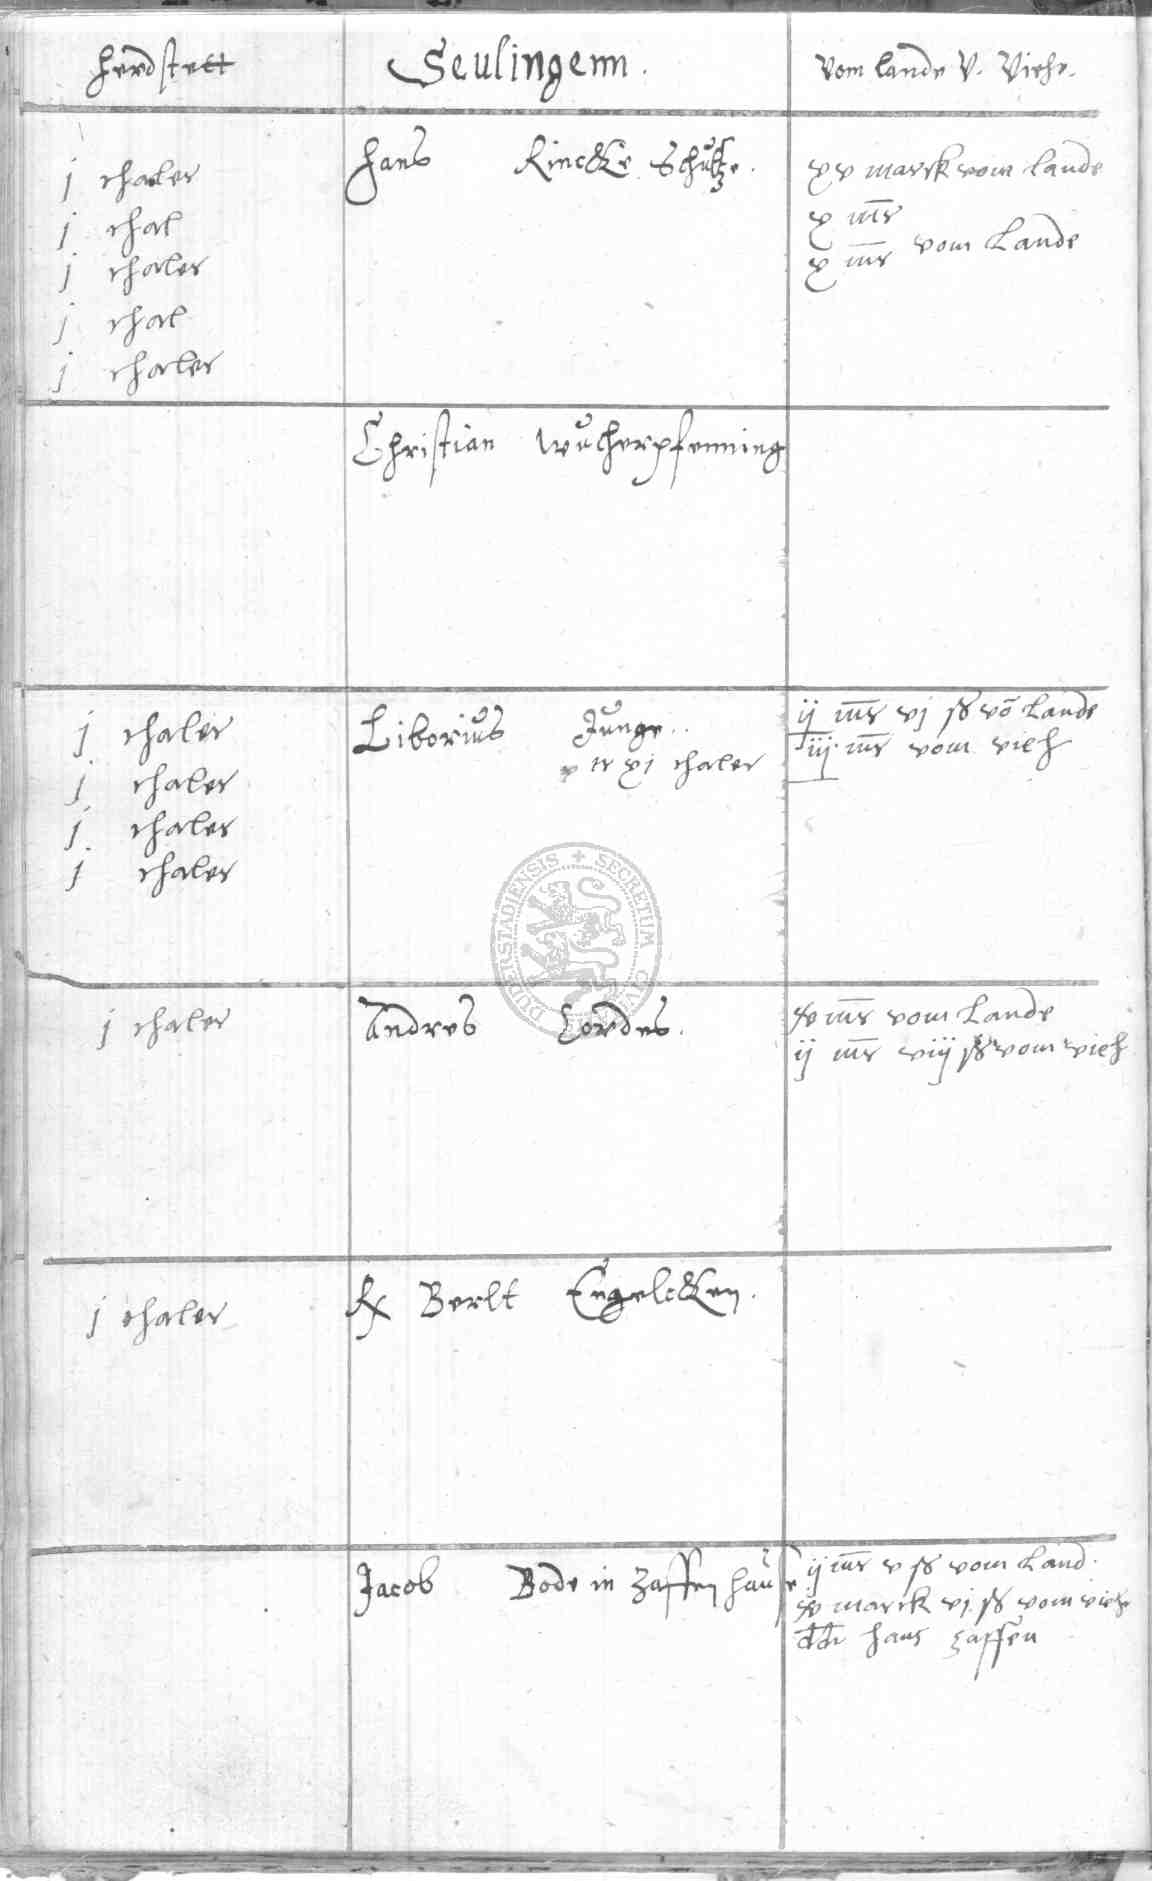 Herdstett
Seulingenn.
Vom lande V. Viehe.
j thaler
j thal
j thaler
j thal
j thaler
Hans Rincke Schultze.
xv marck vom lande
x mr
x mr vom Lande
Christian Wucherpfenning
j thaler
j thaler
j thaler
j thaler
Liborius Junge..
xj thaler
ij mr vj ß võ Lande
iij mr vom vieh
j thaler
Andres Cordes.
mr vom Lande
ij mr viij ß vom vieh
j thaler
Berlt Engelcken.
Jacob Bode in Zaffen hause
ij mr v ß vom Land.
marck vj ß vom viehe
hans zaffen
DUDERSTADIENSIS + SECRETUM CIVI